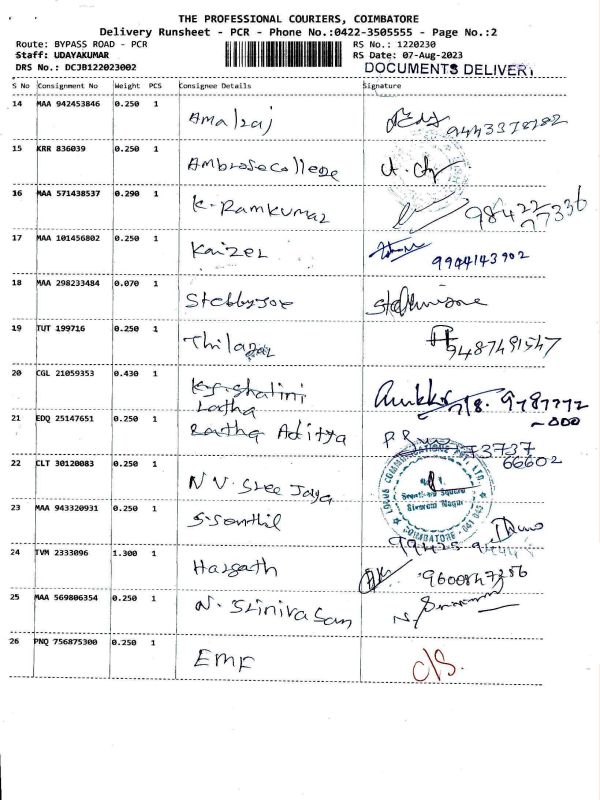 THE PROFESSIONAL COURIERS, COIMBATORE
Delivery Runsheet - PCR - Phone No.:0422-3505555 - Page No.:2
Route: BYPASS ROAD - PCR RS No.: 1220230
Staff: UDAYAKUMAR RS Date: 07-Aug-2023
DRS No.: DCJB122023002 DOCUMENTS DELIVERY
S No Consignment No Weight PCS Consignee Details Signature
14 MAA 942453846 0.250 1 Amalraj
15 KRR 836039 0.250 1 Ambrose College
16 MAA 571438537 0.290 1 K. Ramkumar 98422 77336
17 MAA 101456802 0.250 1 Kaizer 9944143902
18 MAA 298233484 0.070 1 Stebbyjoe
19 TUT 199716 0.250 1 9487491547
20 CGL 21059353 0.430 1 K.S. Shalini
Latha 9787772
-000
21 EDQ 25147651 0.250 1 Aditya 73737
66602
22 CLT 30120083 0.250 1 N V. Sree Jaya
LOTUS COMMUNICATIONS PVT. LTD.
Square
Sivaram Nagar
COIMBATORE - 641 045
23 MAA 943320931 0.250 1 S. Senthil
24 TVM 2333096 1.300 1 Hasgath 9600847256
25 MAA 569806354 0.250 1 N. Srinivasan
26 PNQ 756875300 0.250 1 EMF C/S.